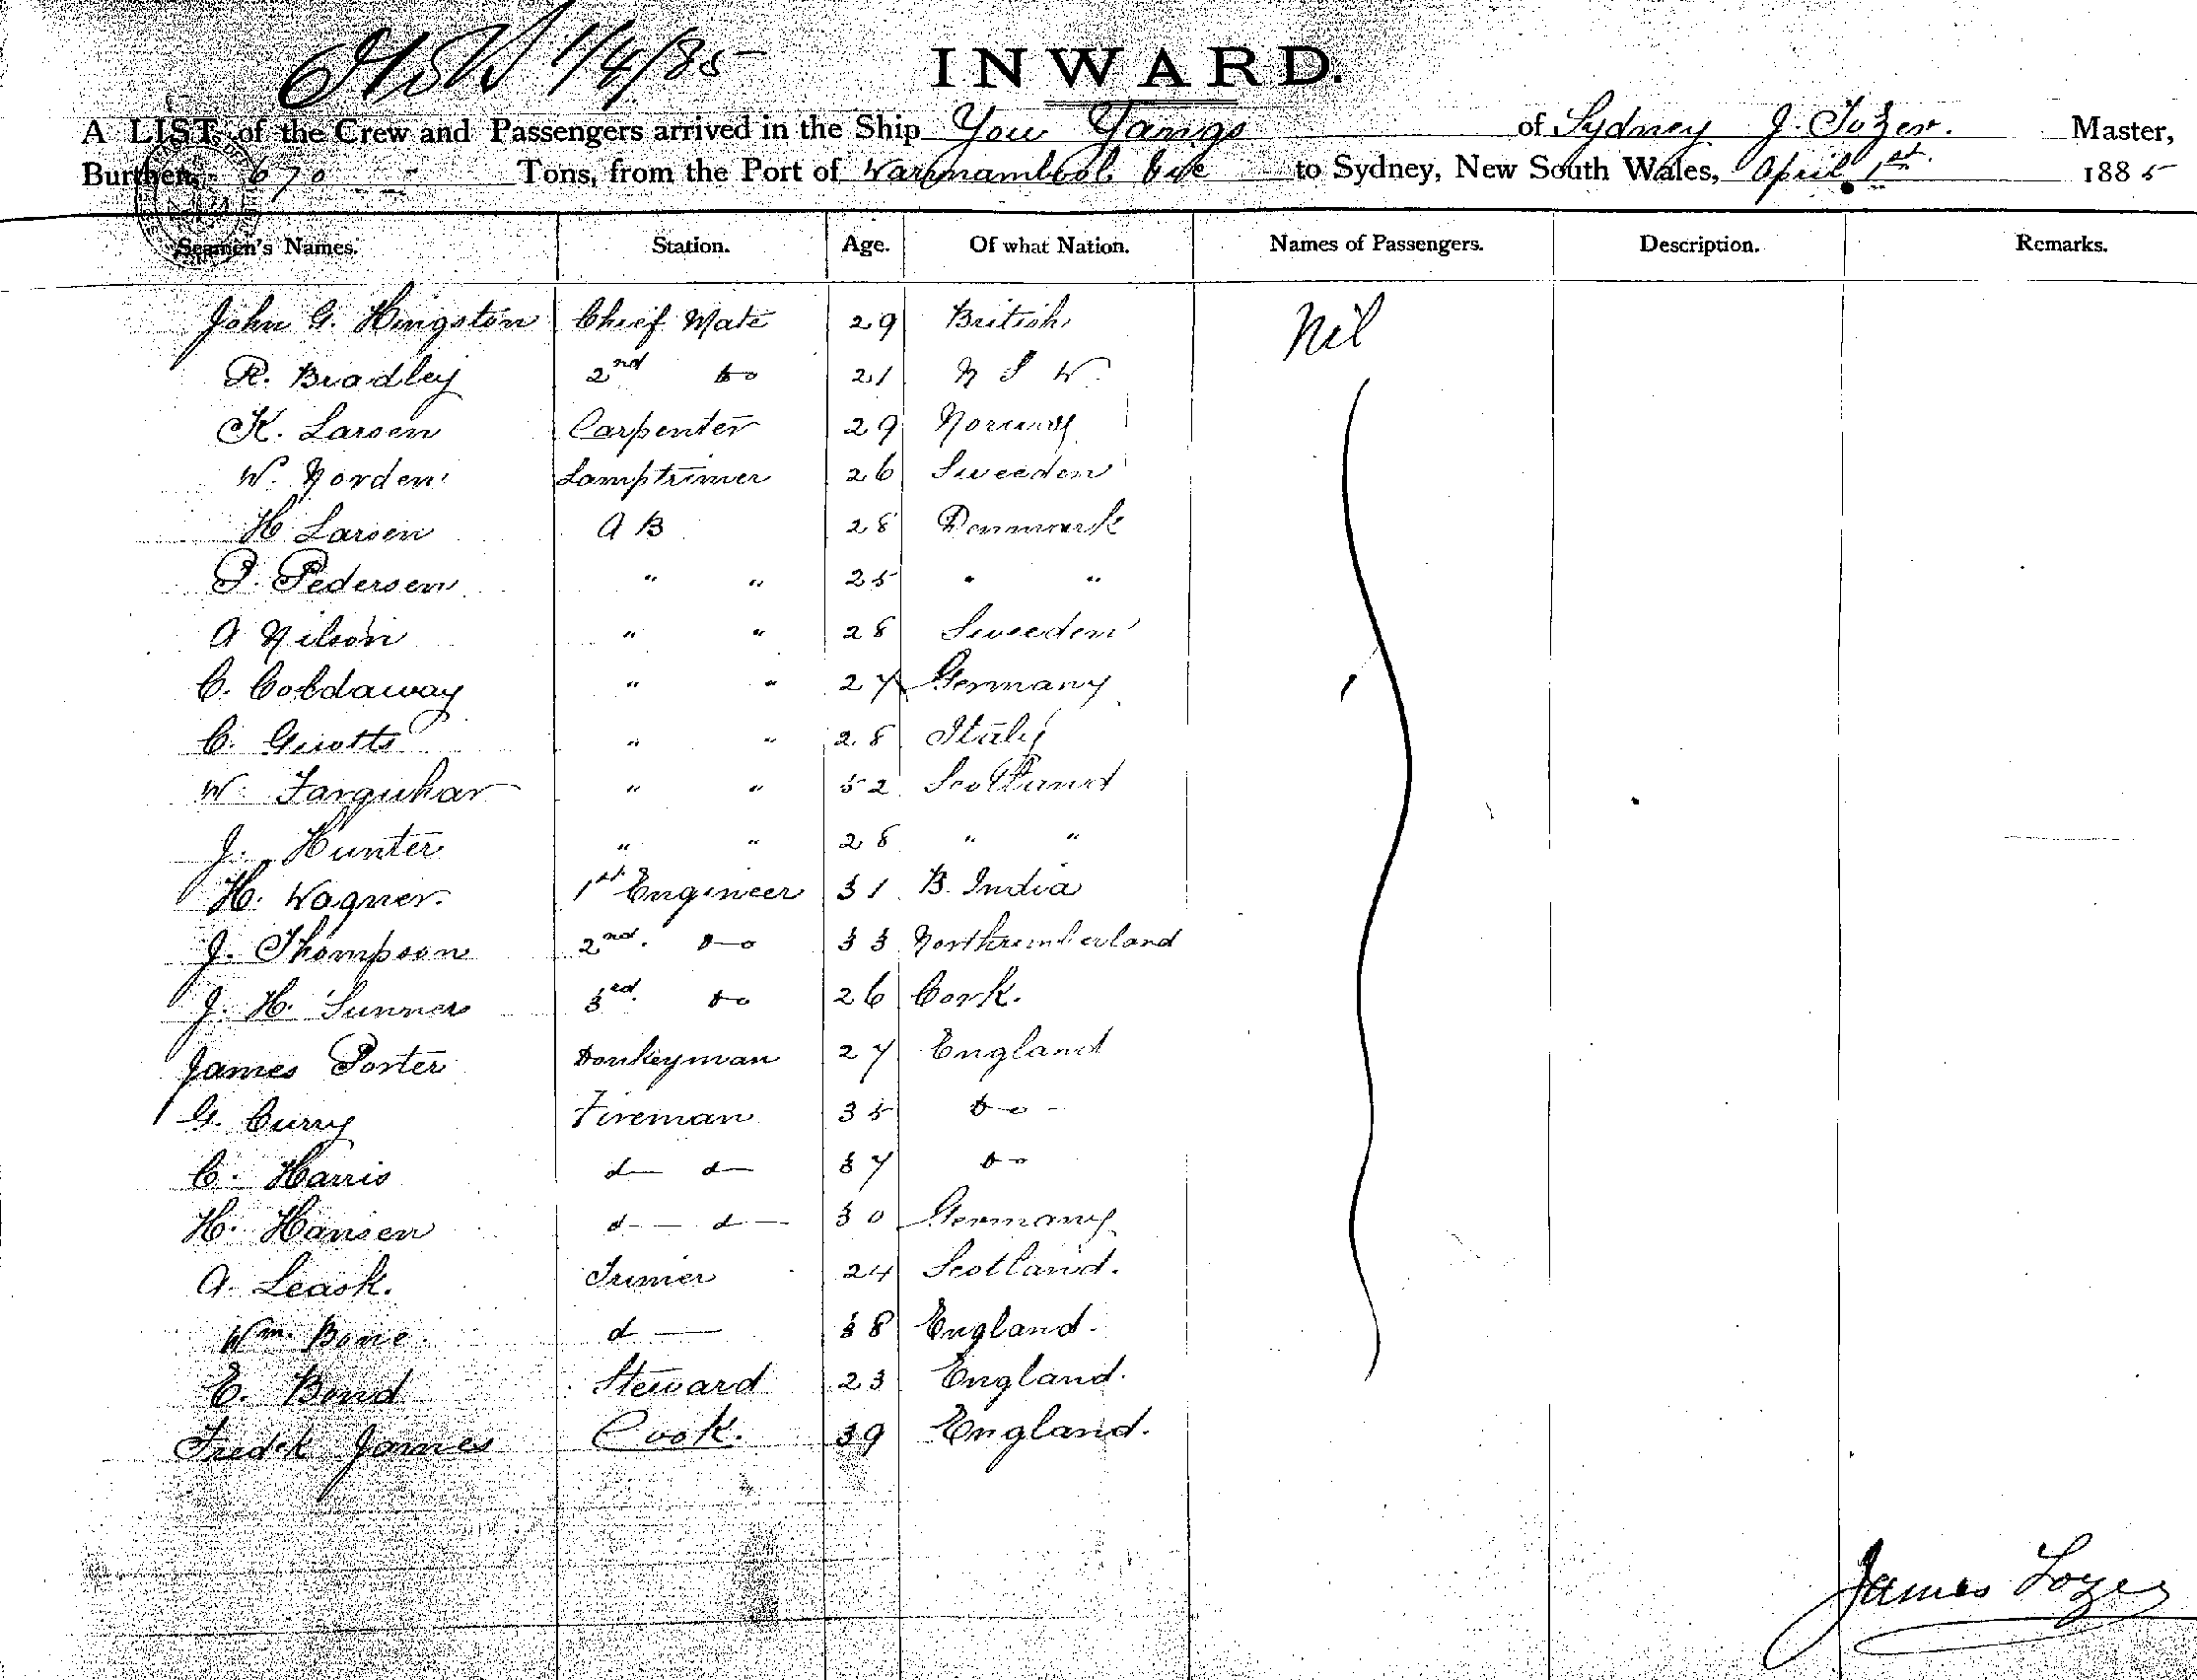 1/4/85
INWARD.
A LIST of the Crew and Passengers arrived in the Ship You Yangs of Sydney J. Tozer. Master,
Burthen, 670 Tons, from the Port of Warrnambool to Sydney, New South Wales, April 1st 1885
Seamen's Names. Station. Age. Of what Nation. Names of Passengers. Description. Remarks.
John G. Hingston Chief Mate 29 British Nil
R. Bradley 2nd Do 21 N S W.
K. Larsen Carpenter 29 Norway
W. Norden Lamptrimer 26 Sweeden
H Larsen A B 28 Denmark
P. Pedersen " " 25 " "
A Nilson " " 28 Sweeden
C. Coldaway " " 27 Germany
C. " " 28 Italy
W. Farquhar " " 52 Scotland
J. Hunter " " 28 " "
H. Wagner. 1st Engineer 31 B. India
J. Thompson 2nd. Do 33 Northumberland
J. H. Sunners 3rd. Do 26 Cork.
James Porter Donkeyman 27 England
G. Curry Fireman 35 Do -
C. Harris d— d— 37 Do
H. Hansen d— d— 30 Germany
A. Leask. Trimer 24 Scotland.
Wm. Bone. d — 38 England.
E. Bond Steward 23 England.
Fredk James Cook. 39 England.
James Tozer